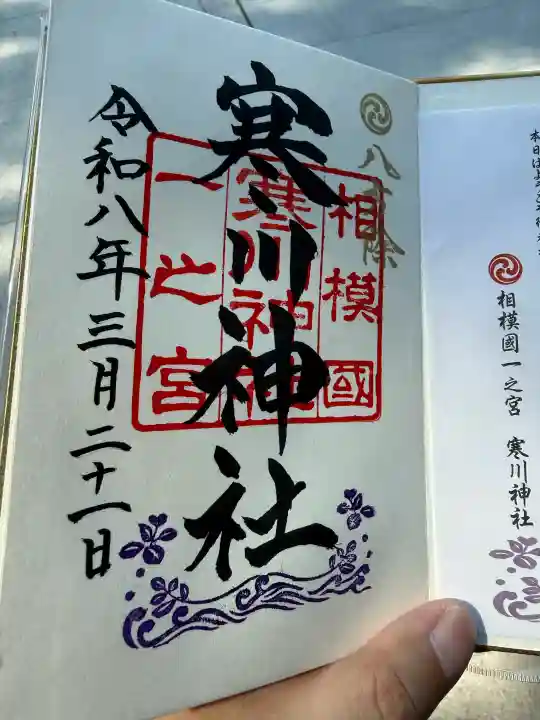 本日はよ
相模國一之宮　寒川神社
八方除
相模國
寒川神社
一之宮
寒川神社
令和八年三月二十一日